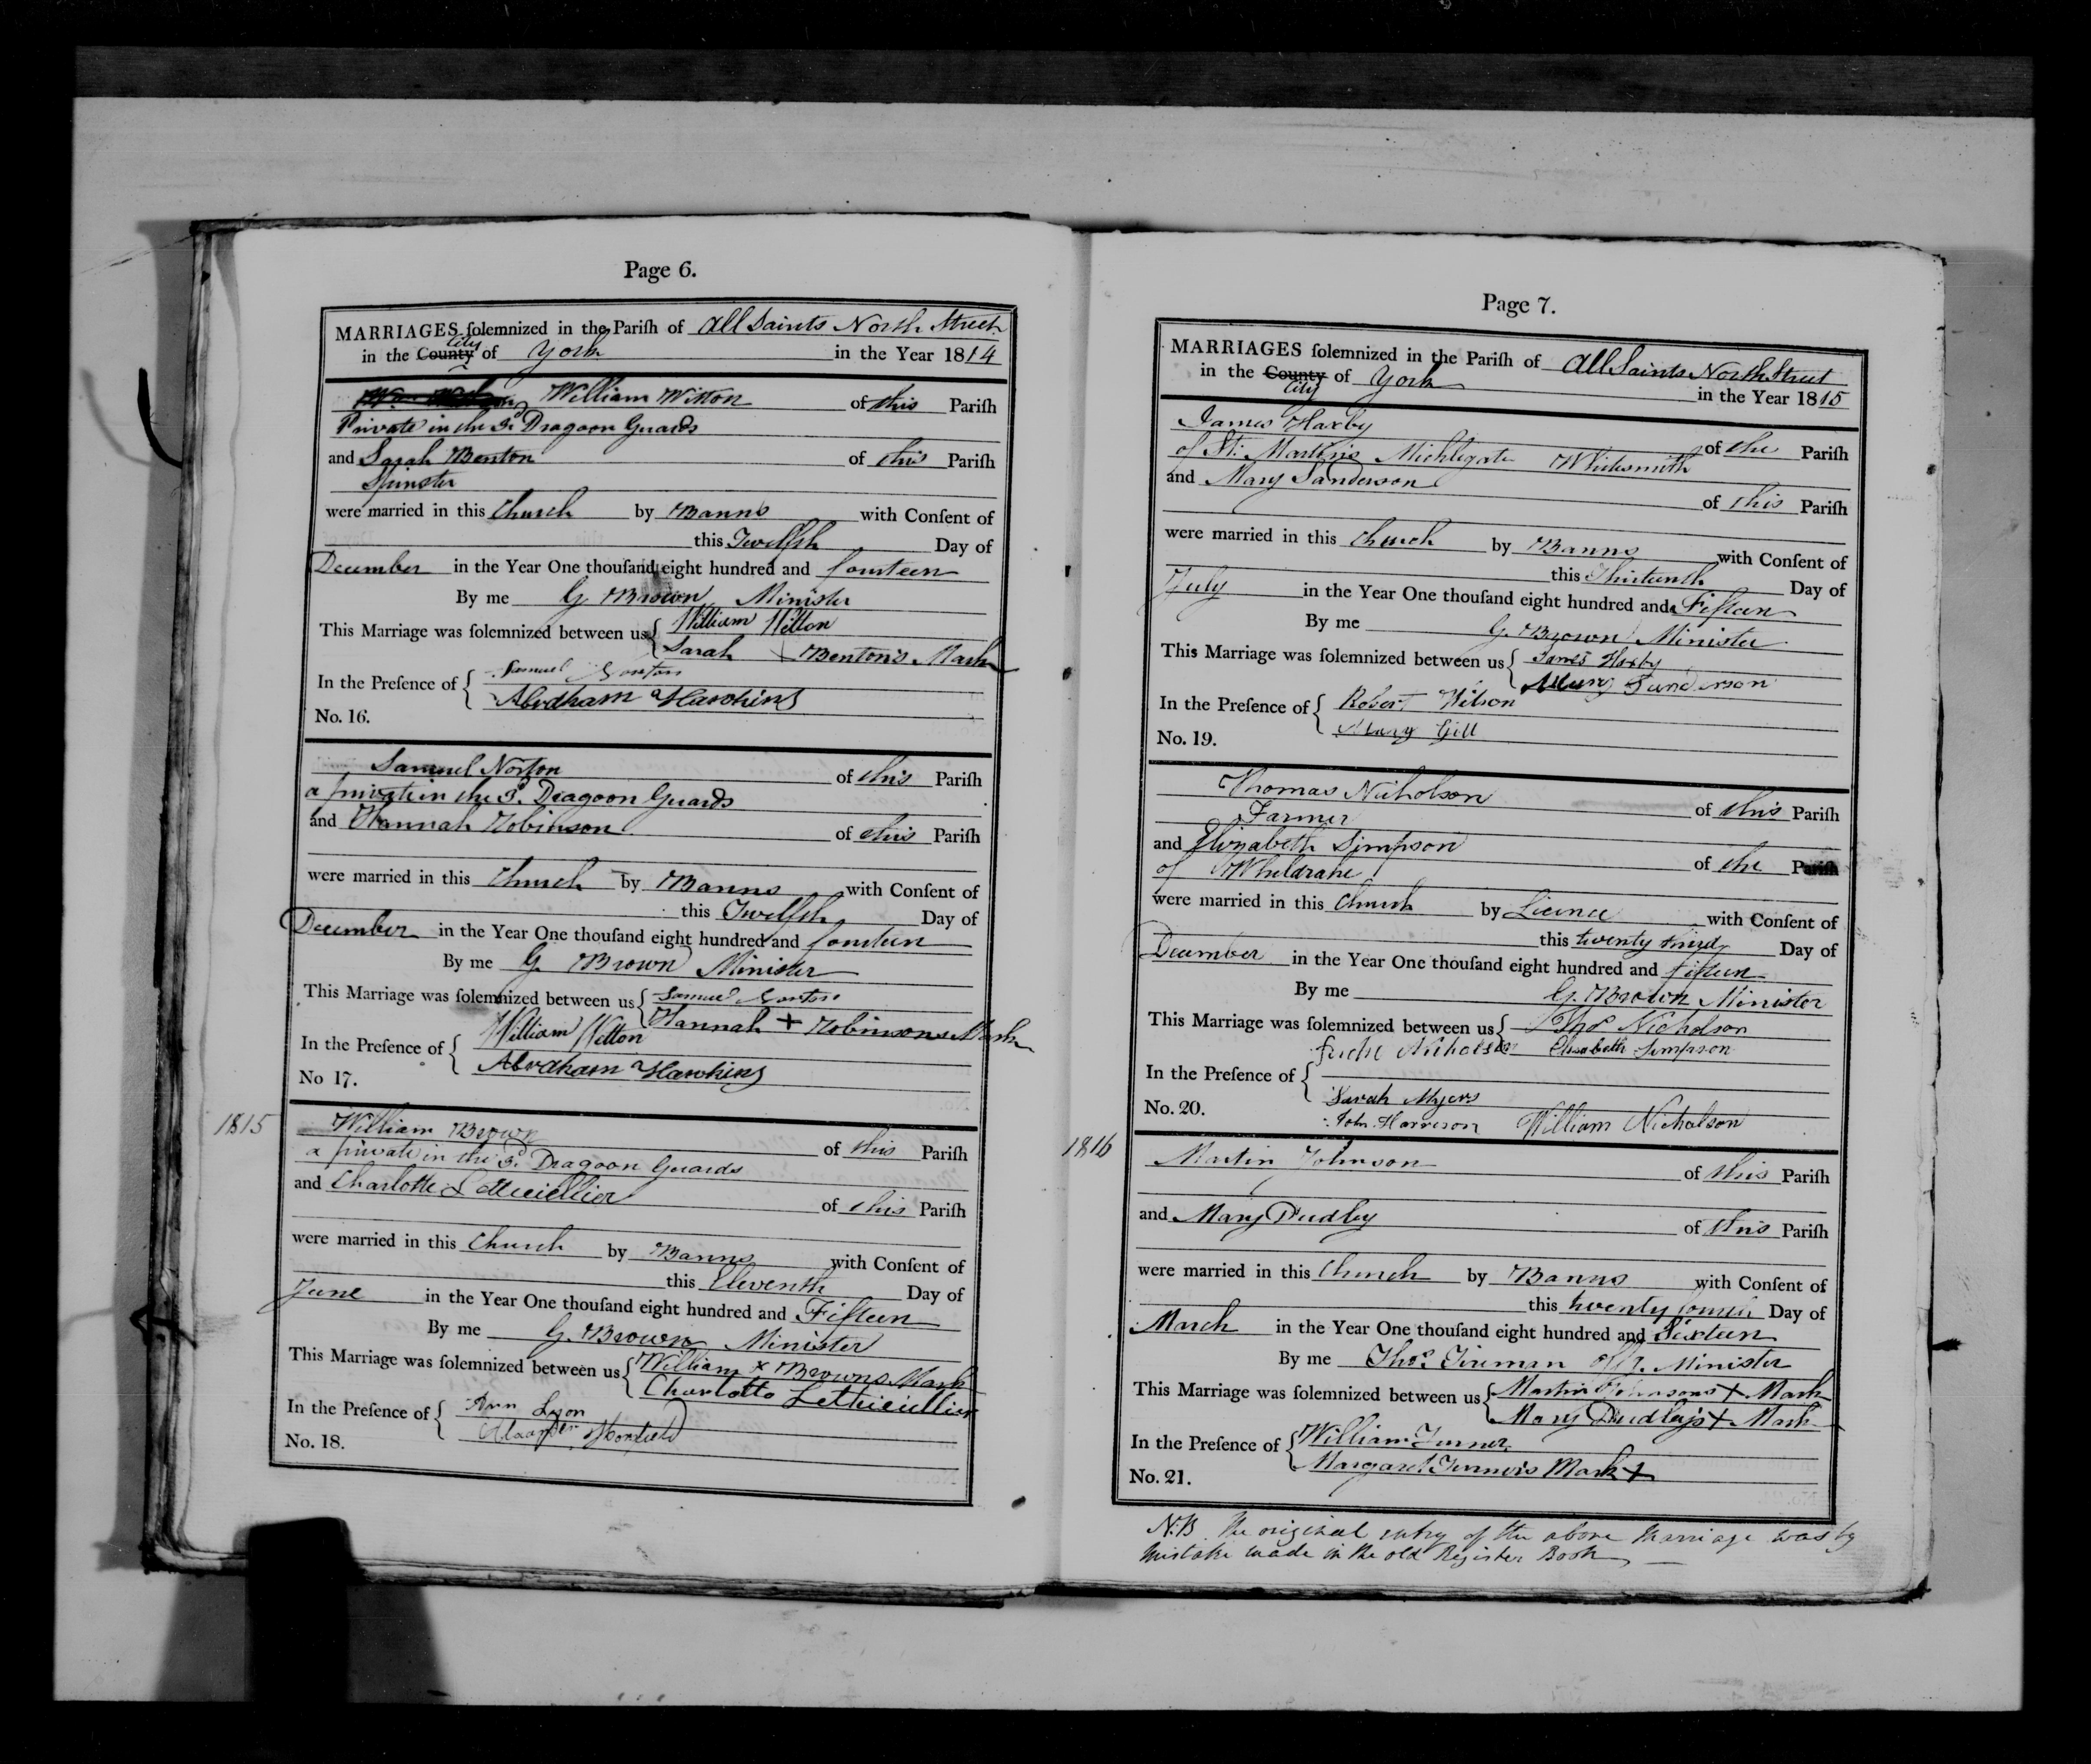 Page 6.
MARRIAGES solemnized in the Parish of All Saints North Street
City
in the County of York in the Year 1814
William Witton of this Parish
Private in the 3d. Dragoon Guards
and Sarah Benton of this Parish
Spinster
were married in this Church by Banns with Consent of
this Twelfth Day of
December in the Year One thousand eight hundred and fourteen
By me G Brown Minister
This Marriage was solemnized between us { William Witton
Sarah Benton's Mark
In the Presence of { Samuel Norton
Abraham Hawkins
No. 16.
Samuel Norton of this Parish
a private in the 3d. Dragoon Guards
and Hannah Robinson of this Parish
were married in this Church by Banns with Consent of
this Twelfth Day of
December in the Year One thousand eight hundred and fourteen
By me G. Brown Minister
This Marriage was solemnized between us { Samuel Norton
Hannah + Robinsons Mark
In the Presence of { William Witton
Abraham Hawkins
No 17.
1815
William Brown of this Parish
a private in the 3d. Dragoon Guards
and Charlotte Lethieullier of this Parish
were married in this Church by Banns with Consent of
this Eleventh Day of
June in the Year One thousand eight hundred and Fifteen
By me G. Brown Minister
This Marriage was solemnized between us { William x Browns Mark
Charlotte Lethieiullier
In the Presence of { Ann Lyon
No. 18.
Page 7.
MARRIAGES solemnized in the Parish of All Saints North Street
in the County of York in the Year 1815
City
James Haxby of the Parish
of St. Martins Micklegate Whitesmith
and Mary Sanderson of this Parish
were married in this Church by Banns with Consent of
this Thirteenth Day of
July in the Year One thousand eight hundred and Fifteen
By me G. Brown Minister
This Marriage was solemnized between us { James Haxby
Mary Sanderson
In the Presence of { Robert Wilson
Mary Gill
No. 19.
Thomas Nicholson of this Parish
Farmer
and Elizabeth Simpson of the Parish
of Wheldrake
were married in this Church by Licence with Consent of
this twenty third Day of
December in the Year One thousand eight hundred and fifteen
By me G. Brown Minister
This Marriage was solemnized between us { Thos Nicholson
Nicholson Elisabeth Simpson
In the Presence of {
Sarah Myers
No. 20.
John Harrison William Nicholson
1816
Martin Johnson of this Parish
and Mary Dudley of this Parish
were married in this Church by Banns with Consent of
this twenty fourth Day of
March in the Year One thousand eight hundred and Sixteen
By me Thos. Tireman Offg. Minister
This Marriage was solemnized between us { Martin Johnsons + Mark
Mary Dudley's + Mark
In the Presence of { William Turner
Margaret Turners Mark +
No. 21.
N.B. The original entry of the above Marriage was by
mistake made in the old Register Book